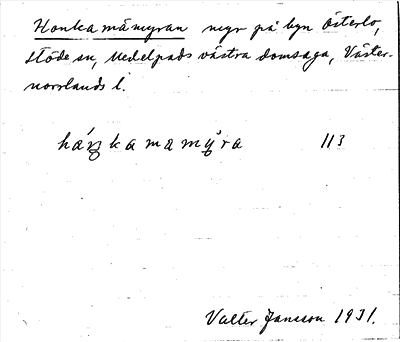 Honkamåmyran myr på byn Österlo,
Stöde sn, Medelpads västra domsaga, Väster-
norrlands l.
håŋkamamy̆ra 113
Valter Jansson 1931.